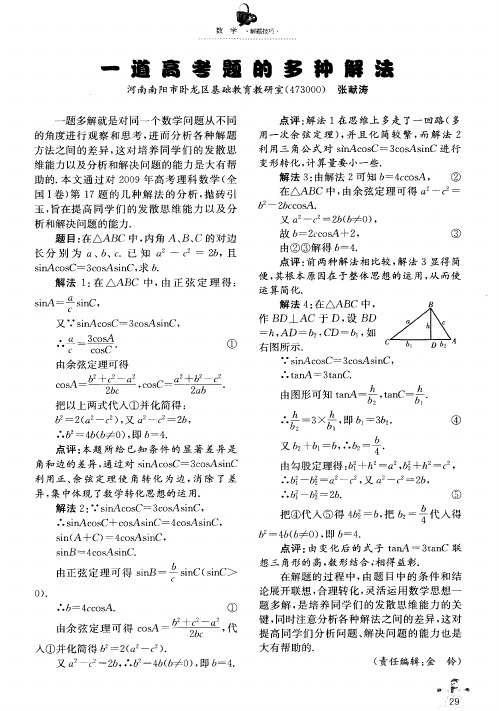 数 学 ·解题技巧·
一道高考题的多种解法
河南南阳市卧龙区基础教育教研室(473000) 张献涛
一题多解就是对同一个数学问题从不同
的角度进行观察和思考,进而分析各种解题
方法之间的差异,这对培养同学们的发散思
维能力以及分析和解决问题的能力是大有帮
助的.本文通过对 2009 年高考理科数学(全
国Ⅰ卷)第 17 题的几种解法的分析,抛砖引
玉,旨在提高同学们的发散思维能力以及分
析和解决问题的能力.
题目:在△ABC 中,内角 A、B、C 的对边
长分别为 a、b、c. 已知 a²－c²＝2b,且
sinAcosC＝3cosAsinC,求 b.
解法 1:在△ABC 中,由正弦定理得:
sinA＝a/c sinC,
又∵sinAcosC＝3cosAsinC,
∴a/c＝3cosA/cosC. ①
由余弦定理可得
cosA＝(b²＋c²－a²)/2bc,cosC＝(a²＋b²－c²)/2ab.
把以上两式代入①并化简得:
b²＝2(a²－c²),又 a²－c²＝2b,
∴b²＝4b(b≠0),即 b＝4.
点评:本题所给已知条件的显著差异是
角和边的差异,通过对 sinAcosC＝3cosAsinC
利用正、余弦定理使角转化为边,消除了差
异,集中体现了数学转化思想的运用.
解法 2:∵sinAcosC＝3cosAsinC,
∴sinAcosC＋cosAsinC＝4cosAsinC,
sin(A＋C)＝4cosAsinC,
sinB＝4cosAsinC.
由正弦定理可得 sinB＝b/c sinC(sinC＞
0).
∴b＝4ccosA. ①
由余弦定理可得 cosA＝(b²＋c²－a²)/2bc,代
入①并化简得 b²＝2(a²－c²).
又 a²－c²＝2b,∴b²＝4b(b≠0),即 b＝4.
点评:解法 1 在思维上多走了一回路(多
用一次余弦定理),并且化简较繁,而解法 2
利用三角公式对 sinAcosC＝3cosAsinC 进行
变形转化,计算量要小一些.
解法 3:由解法 2 可知 b＝4ccosA, ②
在△ABC 中,由余弦定理可得 a²－c²＝
b²－2bccosA.
又 a²－c²＝2b(b≠0),
故 b＝2ccosA＋2, ③
由②③解得 b＝4.
点评:前两种解法相比较,解法 3 显得简
便,其根本原因在于整体思想的运用,从而使
运算简化.
解法 4:在△ABC 中,
作 BD⊥AC 于 D,设 BD
＝h,AD＝b₂,CD＝b₁,如
右图所示.
B
a h c
C b₁ D b₂ A
∵sinAcosC＝3cosAsinC,
∴tanA＝3tanC.
由图形可知 tanA＝h/b₂,tanC＝h/b₁.
∴h/b₂＝3×h/b₁,即 b₁＝3b₂. ④
又 b₂＋b₁＝b,∴b₂＝b/4.
由勾股定理得:b₁²＋h²＝a²,b₂²＋h²＝c²,
∴b₁²－b₂²＝a²－c²,又 a²－c²＝2b,
∴b₁²－b₂²＝2b. ⑤
把④代入⑤得 4b₂²＝b,把 b₂＝b/4 代入得
b²＝4b(b≠0),即 b＝4.
点评:由变化后的式子 tanA＝3tanC 联
想三角形的高,数形结合,相得益彰.
在解题的过程中,由题目中的条件和结
论展开联想,合理转化,灵活运用数学思想一
题多解,是培养同学们的发散思维能力的关
键,同时注意分析各种解法之间的差异,这对
提高同学们分析问题、解决问题的能力也是
大有帮助的.
(责任编辑:金 铃)
29